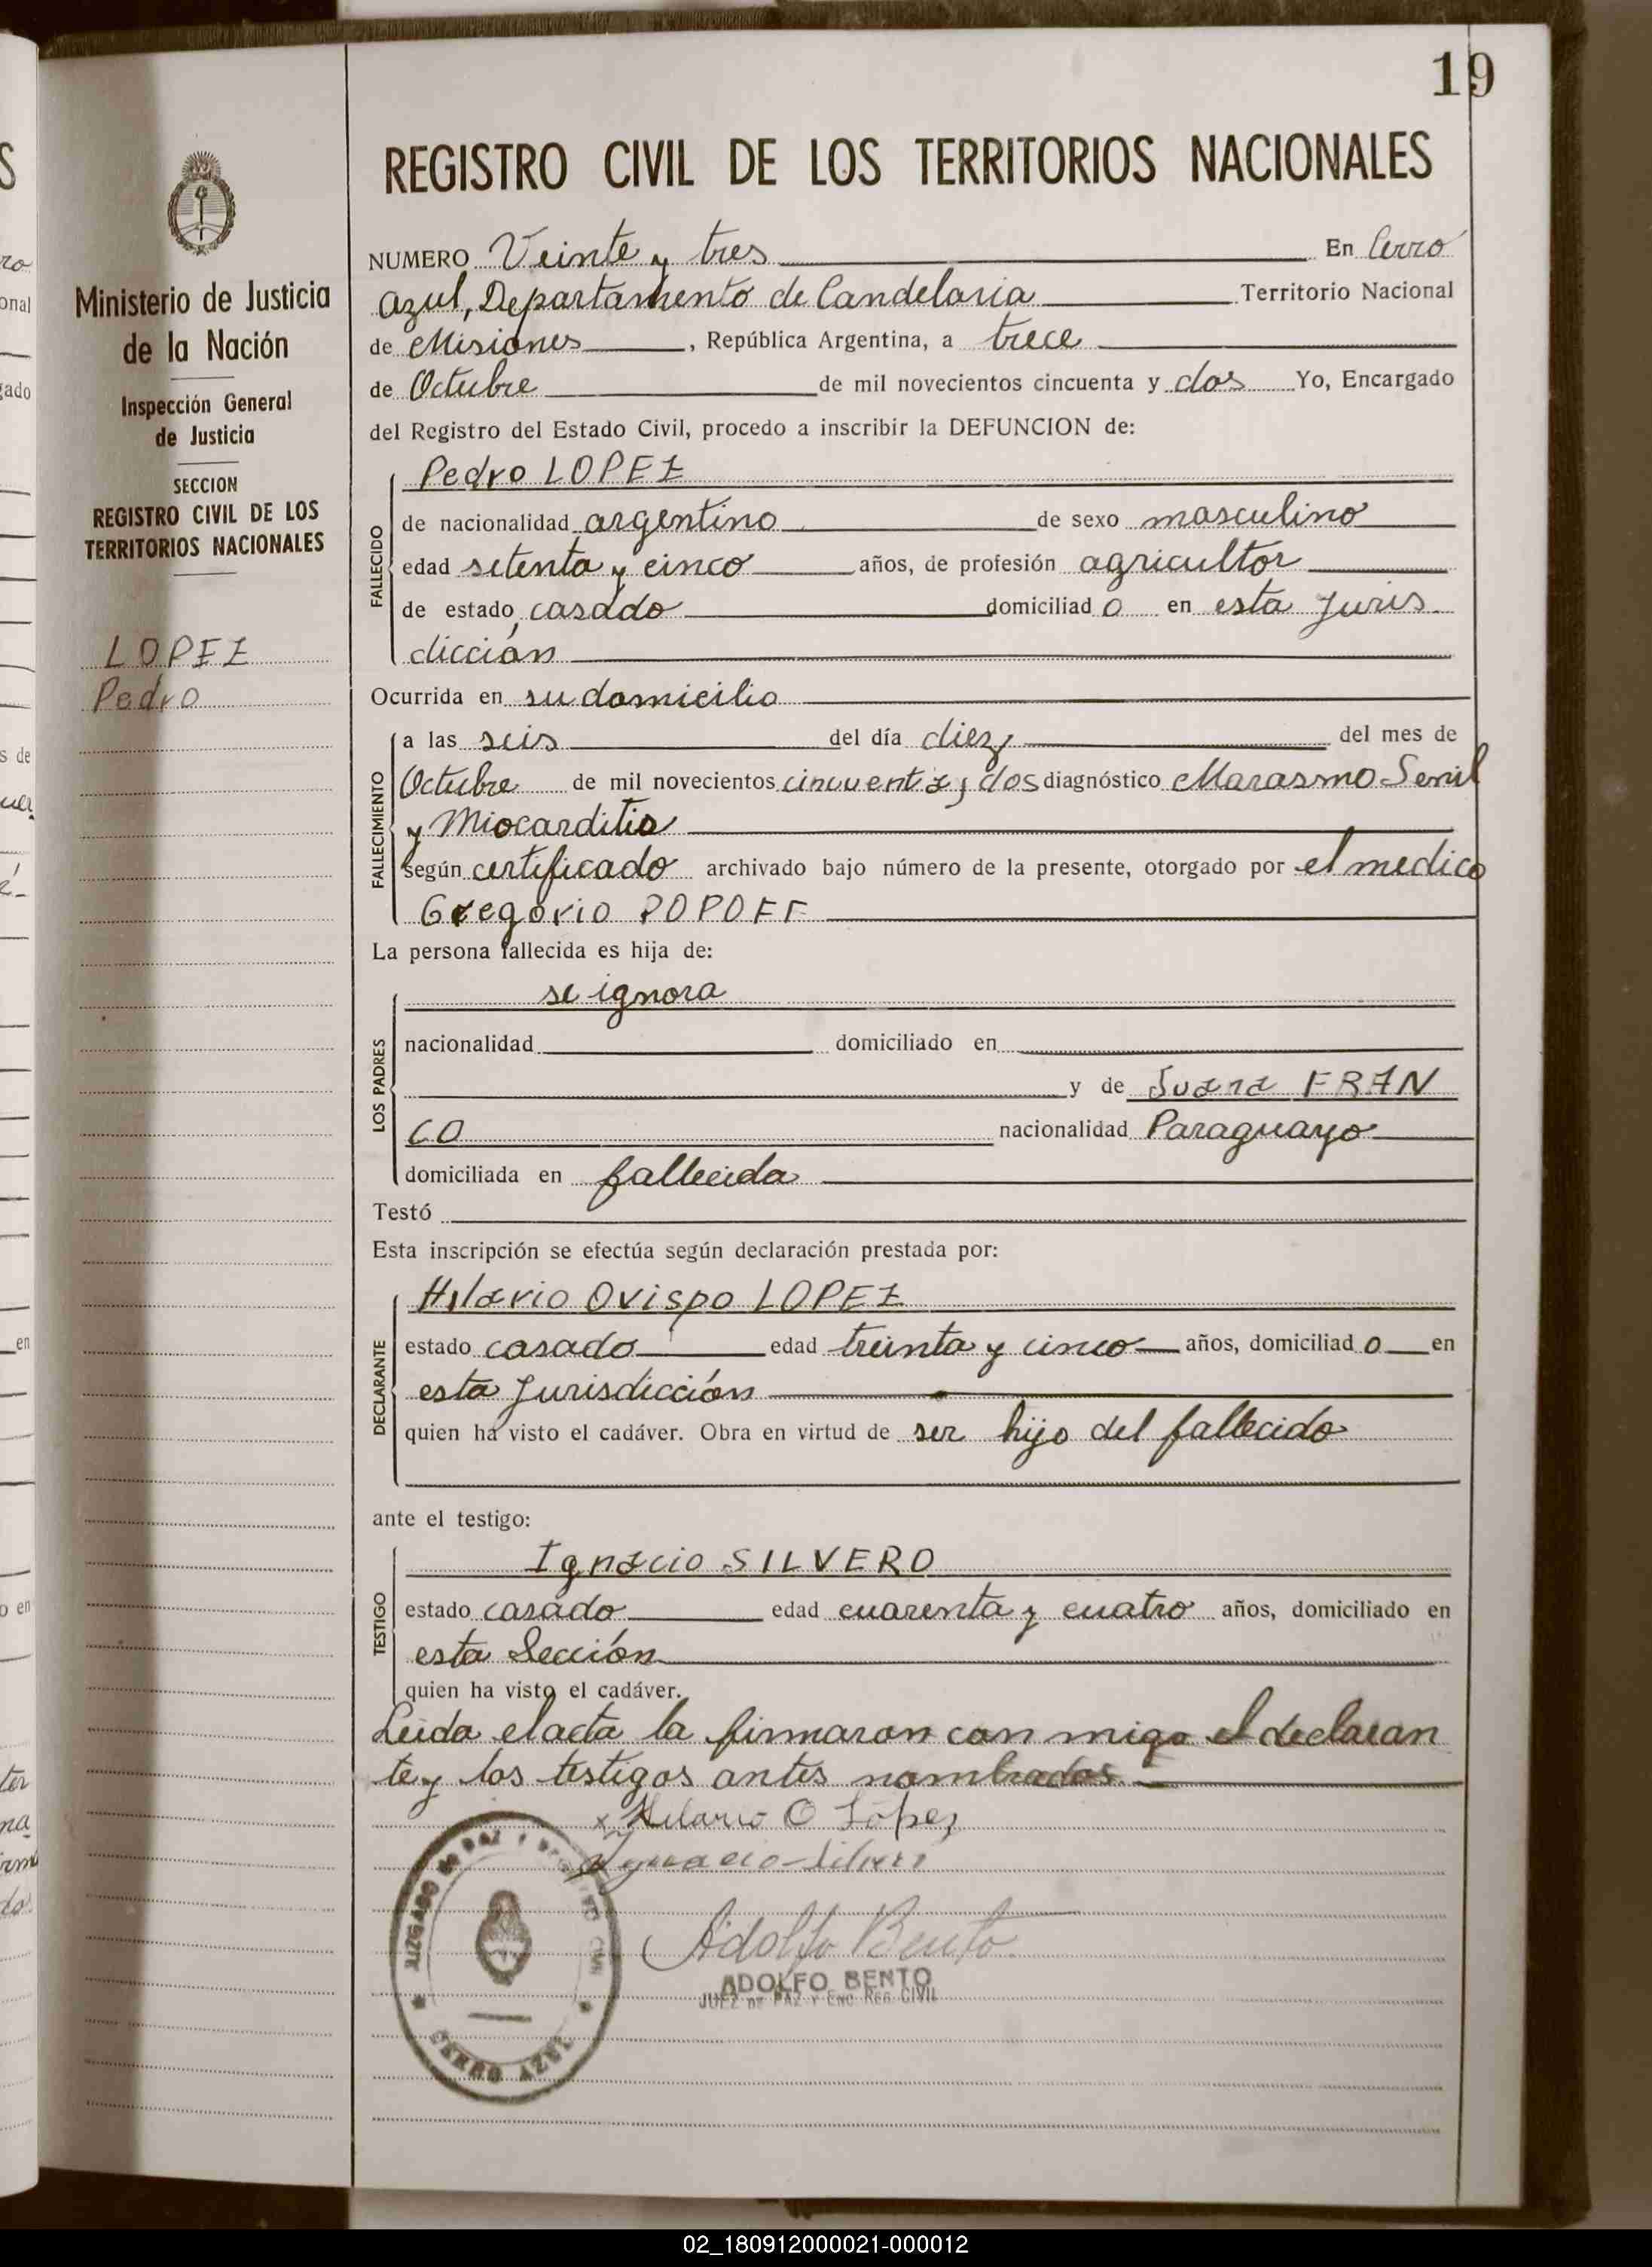 19
REGISTRO CIVIL DE LOS TERRITORIOS NACIONALES
Ministerio de Justicia
de la Nación
Inspección General
de Justicia
SECCION
REGISTRO CIVIL DE LOS
TERRITORIOS NACIONALES
LOPEZ
Pedro
NUMERO Veinte y tres En Cerro
azul, Departamento de Candelaria Territorio Nacional
de Misiones, República Argentina, a trece
de Octubre de mil novecientos cincuenta y dos Yo, Encargado
del Registro del Estado Civil, procedo a inscribir la DEFUNCION de:
FALLECIDO
Pedro LOPEZ
de nacionalidad argentino de sexo masculino
edad setenta y cinco años, de profesión agricultor
de estado casado domiciliado en esta juris
dicción
Ocurrida en su domicilio
FALLECIMIENTO
a las seis del día diez del mes de
Octubre de mil novecientos cincuenta y dos diagnóstico Marasmo Senil
y Miocarditis
según certificado archivado bajo número de la presente, otorgado por el medico
Gregorio POPOFF
La persona fallecida es hija de:
LOS PADRES
se ignora
nacionalidad domiciliado en
y de Juana FRAN
CO nacionalidad Paraguayo
domiciliada en fallecida
Testó
Esta inscripción se efectúa según declaración prestada por:
DECLARANTE
Hilario Ovispo LOPEZ
estado casado edad treinta y cinco años, domiciliado en
esta Jurisdicción
quien ha visto el cadáver. Obra en virtud de ser hijo del fallecido
ante el testigo:
TESTIGO
Ignacio SILVERO
estado casado edad cuarenta y cuatro años, domiciliado en
esta Sección
quien ha visto el cadáver.
Leida el acta la firmaron con migo el declaran
te y los testigos antes nombrados
x Hilario O López
Ygnacio Silvero
Adolfo Bento
ADOLFO BENTO
JUEZ DE PAZ Y ENC REG CIVIL
JUZGADO DE PAZ Y REGISTRO CIVIL
CERRO AZUL
02_180912000021-000012